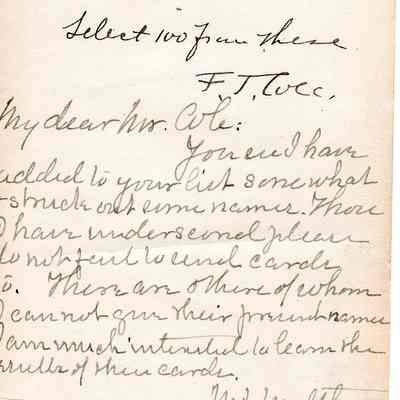 Select 100 from these
F. J. Cole.
My dear Mr. Cole:
You see I have
added to your list somewhat
& struck out some names. Those
I have underscored please
do not fail to send cards
to. There are others of whom
I cannot give their present names
I am much interested to learn the
results of these cards.